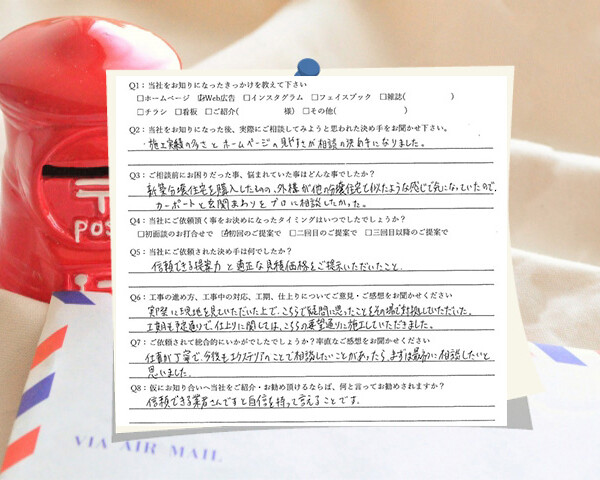 Q1：当社をお知りになったきっかけを教えて下さい
□ホームページ ☑Web広告 □インスタグラム □フェイスブック □雑誌( )
□チラシ □看板 □ご紹介( 様) □その他( )
Q2：当社をお知りになった後、実際にご相談してみようと思われた決め手をお聞かせ下さい。
・施工実績の多さとホームページの見やすさが相談の決め手になりました。
Q3：ご相談前にお困りだった事、悩まれていた事はどんな事でしたか？
新築分譲住宅を購入したものの、外構が他の分譲住宅と似たような感じで気になっていたので、
カーポートと玄関まわりをプロに相談したかった。
Q4：当社にご依頼頂く事をお決めになったタイミングはいつでしたでしょうか？
□初面談のお打合せで ☑初回のご提案で □二回目のご提案で □三回目以降のご提案で
Q5：当社にご依頼された決め手は何でしたか？
信頼できる提案力と適正な見積価格をご提示いただいたこと。
Q6：工事の進め方、工事中の対応、工期、仕上りについてご意見・ご感想をお聞かせください
実際に現地を見ていただいた上で、こちらで疑問に思ったこともその場で対処していただいた。
工期も予定通りで、仕上りに関しては、こちらの要望通りに施工していただきました。
Q7：ご依頼されて総合的にいかがでしたでしょうか？率直なご感想をお聞かせください
仕事が丁寧で、今後もエクステリアのことで相談したいことがあったら、まずは最初に相談したいと
思いました。
Q8：仮にお知り合いへ当社をご紹介・お勧め頂けるならば、何と言ってお勧めされますか？
信頼できる業者さんですと自信を持って言えることです。
POS
VIA AIR MAIL